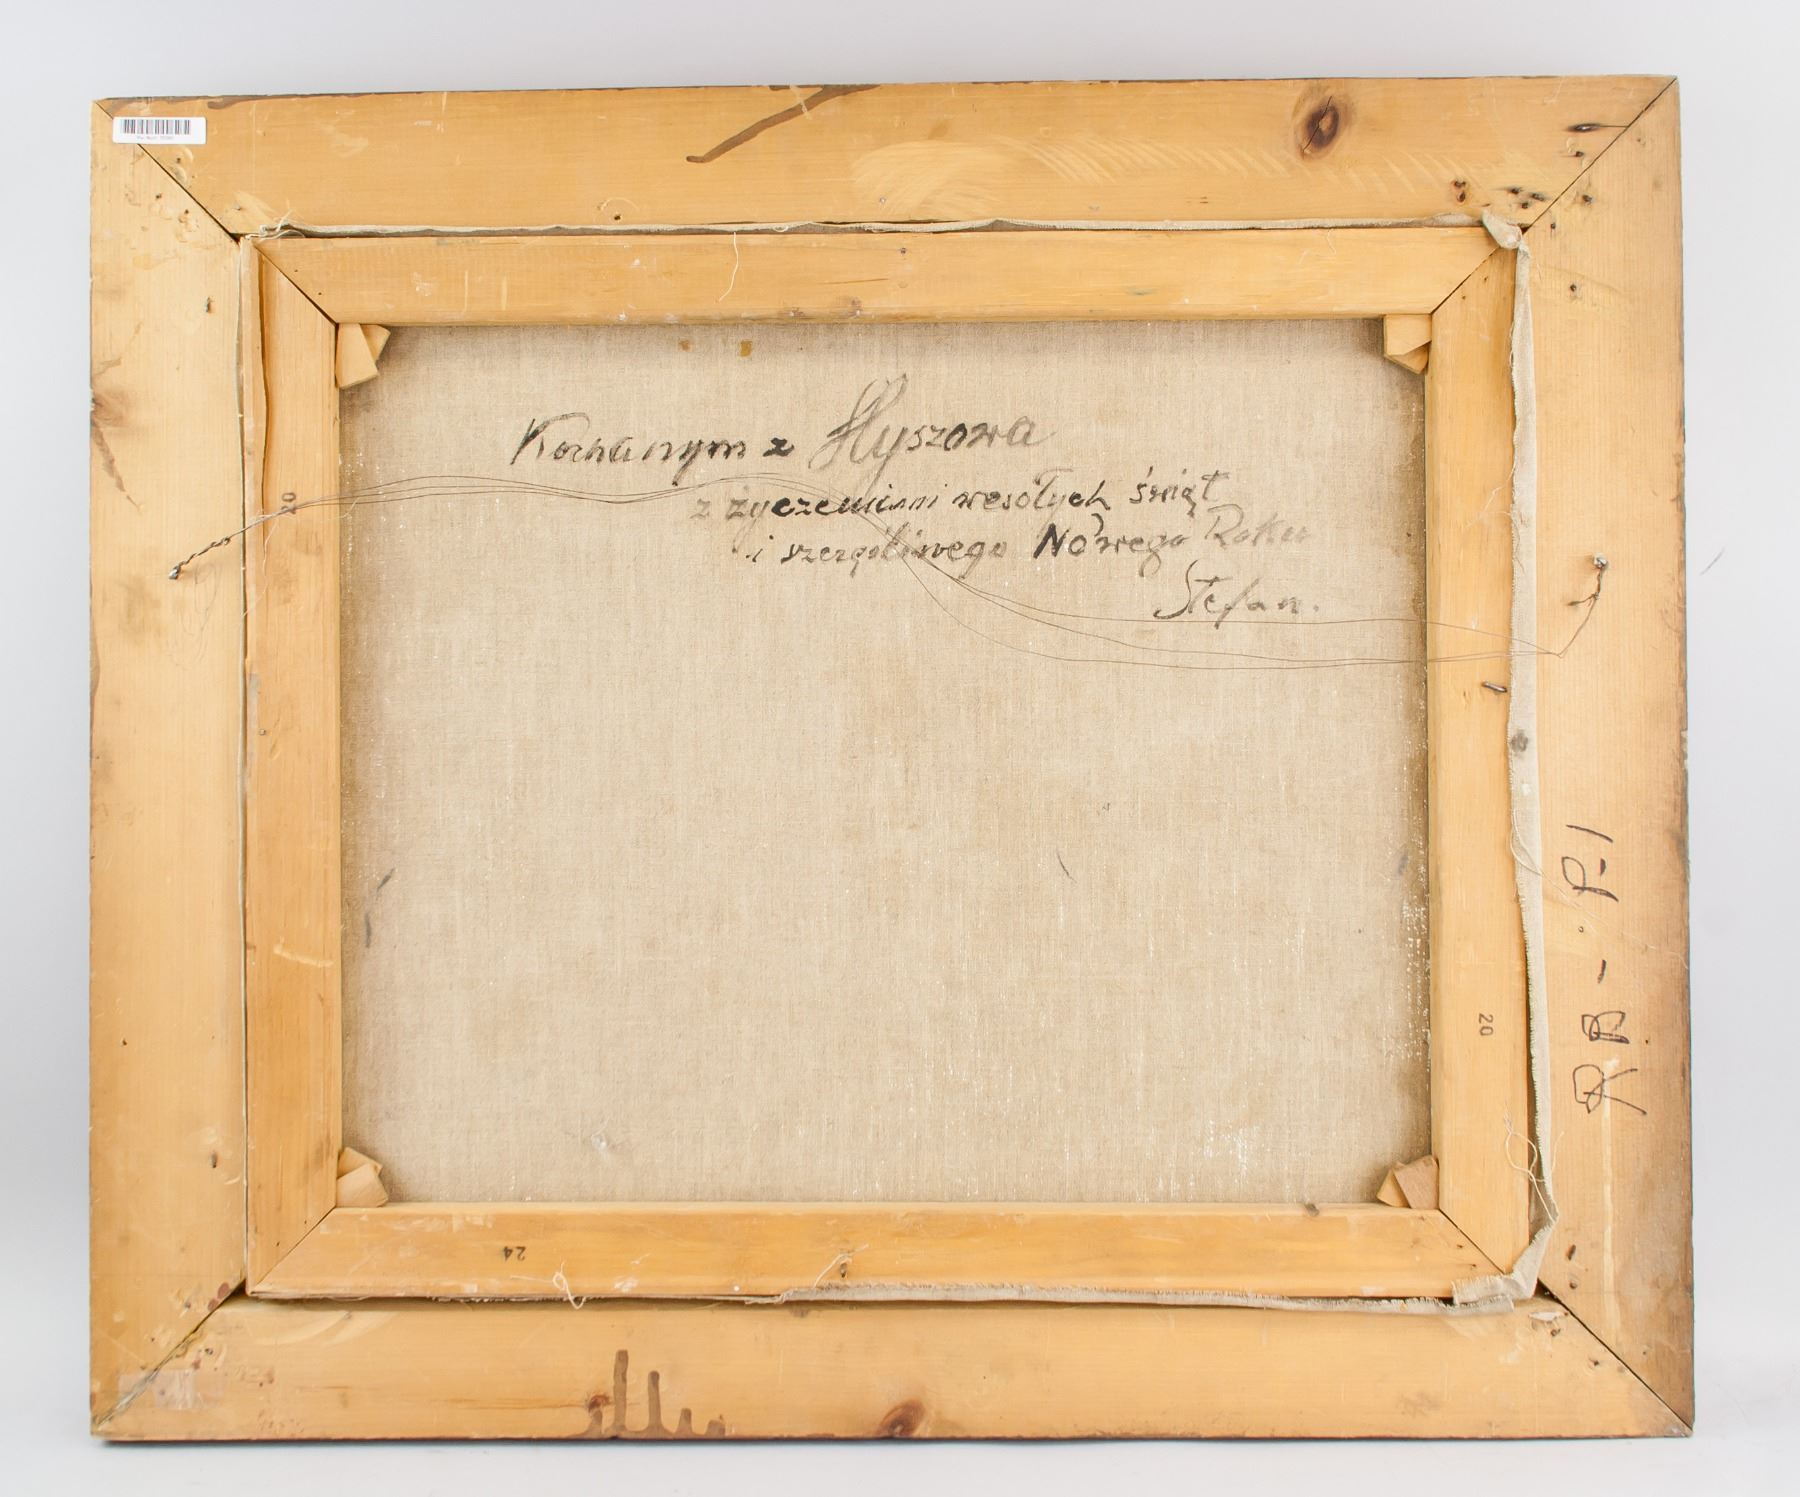 Kochanym z Hyszowa
z życzeniami wesołych świąt
i szczęśliwego Nowego Roku
Stefan.
20
20
24
RB - P-1